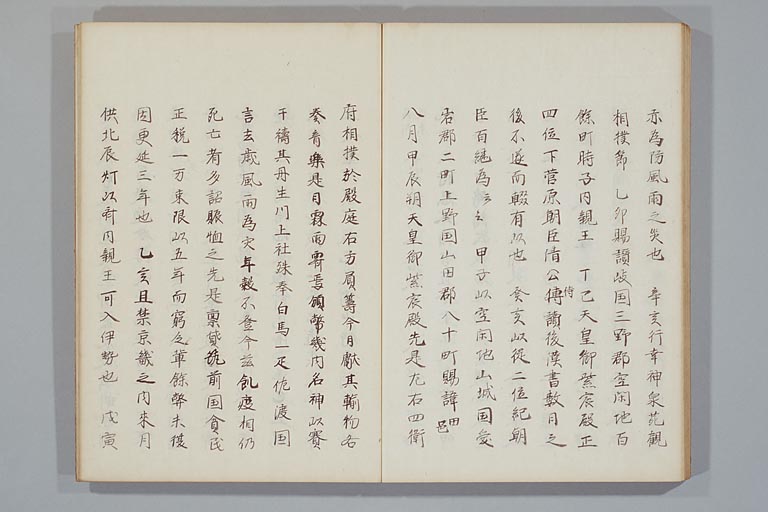 亦為防風雨之災也　辛亥行幸神泉苑観
相撲節　乙卯賜讃岐国三野郡空閑地百
餘町時子内親王　丁巳天皇御紫宸殿正
四位下菅原朝臣清公侍讀後漢書数月之
後不遂而輟有以也　癸亥以從二位紀朝
臣百継為　甲子以空閑地山城国愛
宕郡二町上野国山田郡八十町賜諱田邑
八月甲辰朔天皇御紫宸殿先是左右四衛
府相撲於殿庭右方負籌今日獻其輸物各
奏音樂是日霖雨霽焉頒幣畿内名神以賽
于禱其丹生川上社殊奉白馬一疋佐渡国
言去歳風雨為灾年穀不登今茲飢疫相仍
死亡者多詔賑恤之先是稟貸筑前国貧民
正税一万束限以五年而窮乏単餘弊未復
因更延三年也　乙亥且禁京畿之内来月
供北辰灯以斎内親王可入伊勢也　戊寅